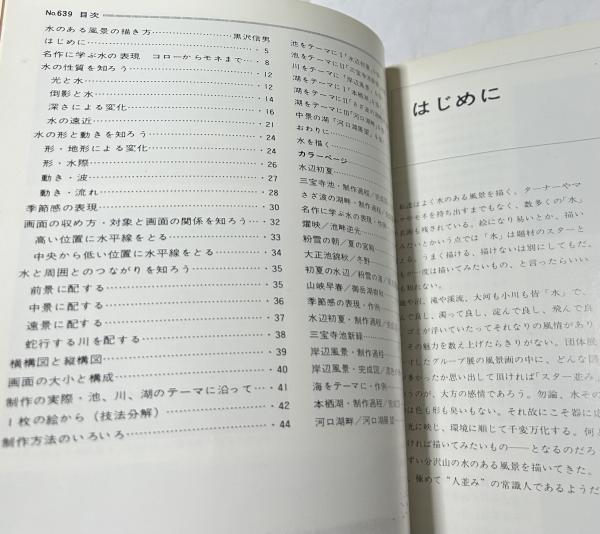 No.639 目次
水のある風景の描き方 黒沢信男
はじめに 5
名作に学ぶ水の表現 コローからモネまで 8
水の性質を知ろう 12
光と水 12
倒影と水 14
深さによる変化 16
水の遠近 21
水の形と動きを知ろう 24
形・地形による変化 24
形・水際 26
動き・波 27
動き・流れ 28
季節感の表現 30
画面の収め方・対象と画面の関係を知ろう 32
高い位置に水平線をとる 33
中央から低い位置に水平線をとる 34
水と周囲とのつながりを知ろう 35
前景に配する 35
中景に配する 36
遠景に配する 37
蛇行する川を配する 38
横構図と縦構図 39
画面の大小と構成 40
制作の実際・池、川、湖のテーマに沿って 41
1枚の絵から(技法分解) 42
制作方法のいろいろ 44
池をテーマにⅠ「水辺初夏」
池をテーマにⅡ「三宝寺池
川をテーマに「岸辺風景」
湖をテーマにⅠ「本栖湖
湖をテーマにⅡ「さざ波の
湖をテーマにⅢ「河口湖
中景の湖「河口湖展望」
おわりに
水を描く
カラーページ
水辺初夏
三宝寺池・制作過程
さざ波の湖畔・制作過程
名作に学ぶ水の表現
燿映/池畔逆光
粉雪の朝/夏の宮
大正池錦秋/冬野
初夏の水辺/粉雪の
山峡早春/御岳湖
季節感の表現・作例
水辺初夏・制作過程
三宝寺池新緑
岸辺風景・制作過程
岸辺風景・完成図
海をテーマに・作例
本栖湖・制作過程
河口湖畔/河口湖
はじめに
はよく水のある風景を描く。ターナーやマ
やモネを持ち出すまでもなく、数多くの「水」
名画も残されている。絵になり易いとか、描い
みたいとかいう点では「水」は題材のスターと
る。うまく描ける、描けないは別にしてもだ。
が一度は描いてみたいもの、と言ったらいい
も知れない。
や沼、滝や渓流、大河も小川も皆「水」で、
んで良し、濁って良し、淀んで良し、飛んで良
ゴミが浮いていたってそれなりの風情があり
その魅力を数え上げたらきりがない。団体展
したグループ展の風景画の中に、どんな図
多かったか思い出して頂ければ「スター並み」
うのが、大方の感情であろう。勿論、水その
は色も形も臭いもない。それ故にこそ器に応
光に映じ、環境に順じて千変万化する。何
ければ描いてみたいもの――となるのだろ
ずい分沢山の水のある風景を描いてきた。
、極めて“人並み”の常識人であるようだ